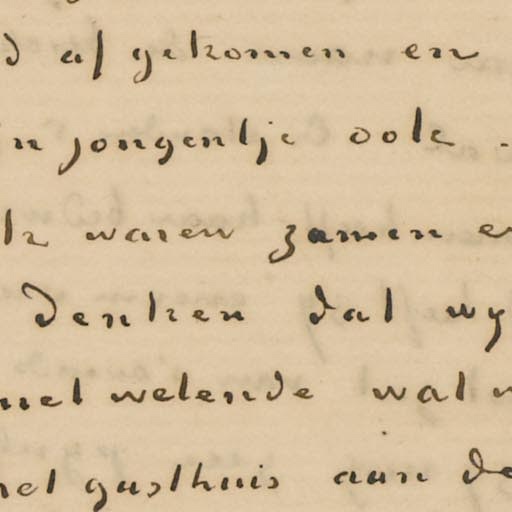 d af gekomen en
jn jongentje ook.
ik waren zamen en
denken dat wy
niet wetende wat w
het gasthuis aan de